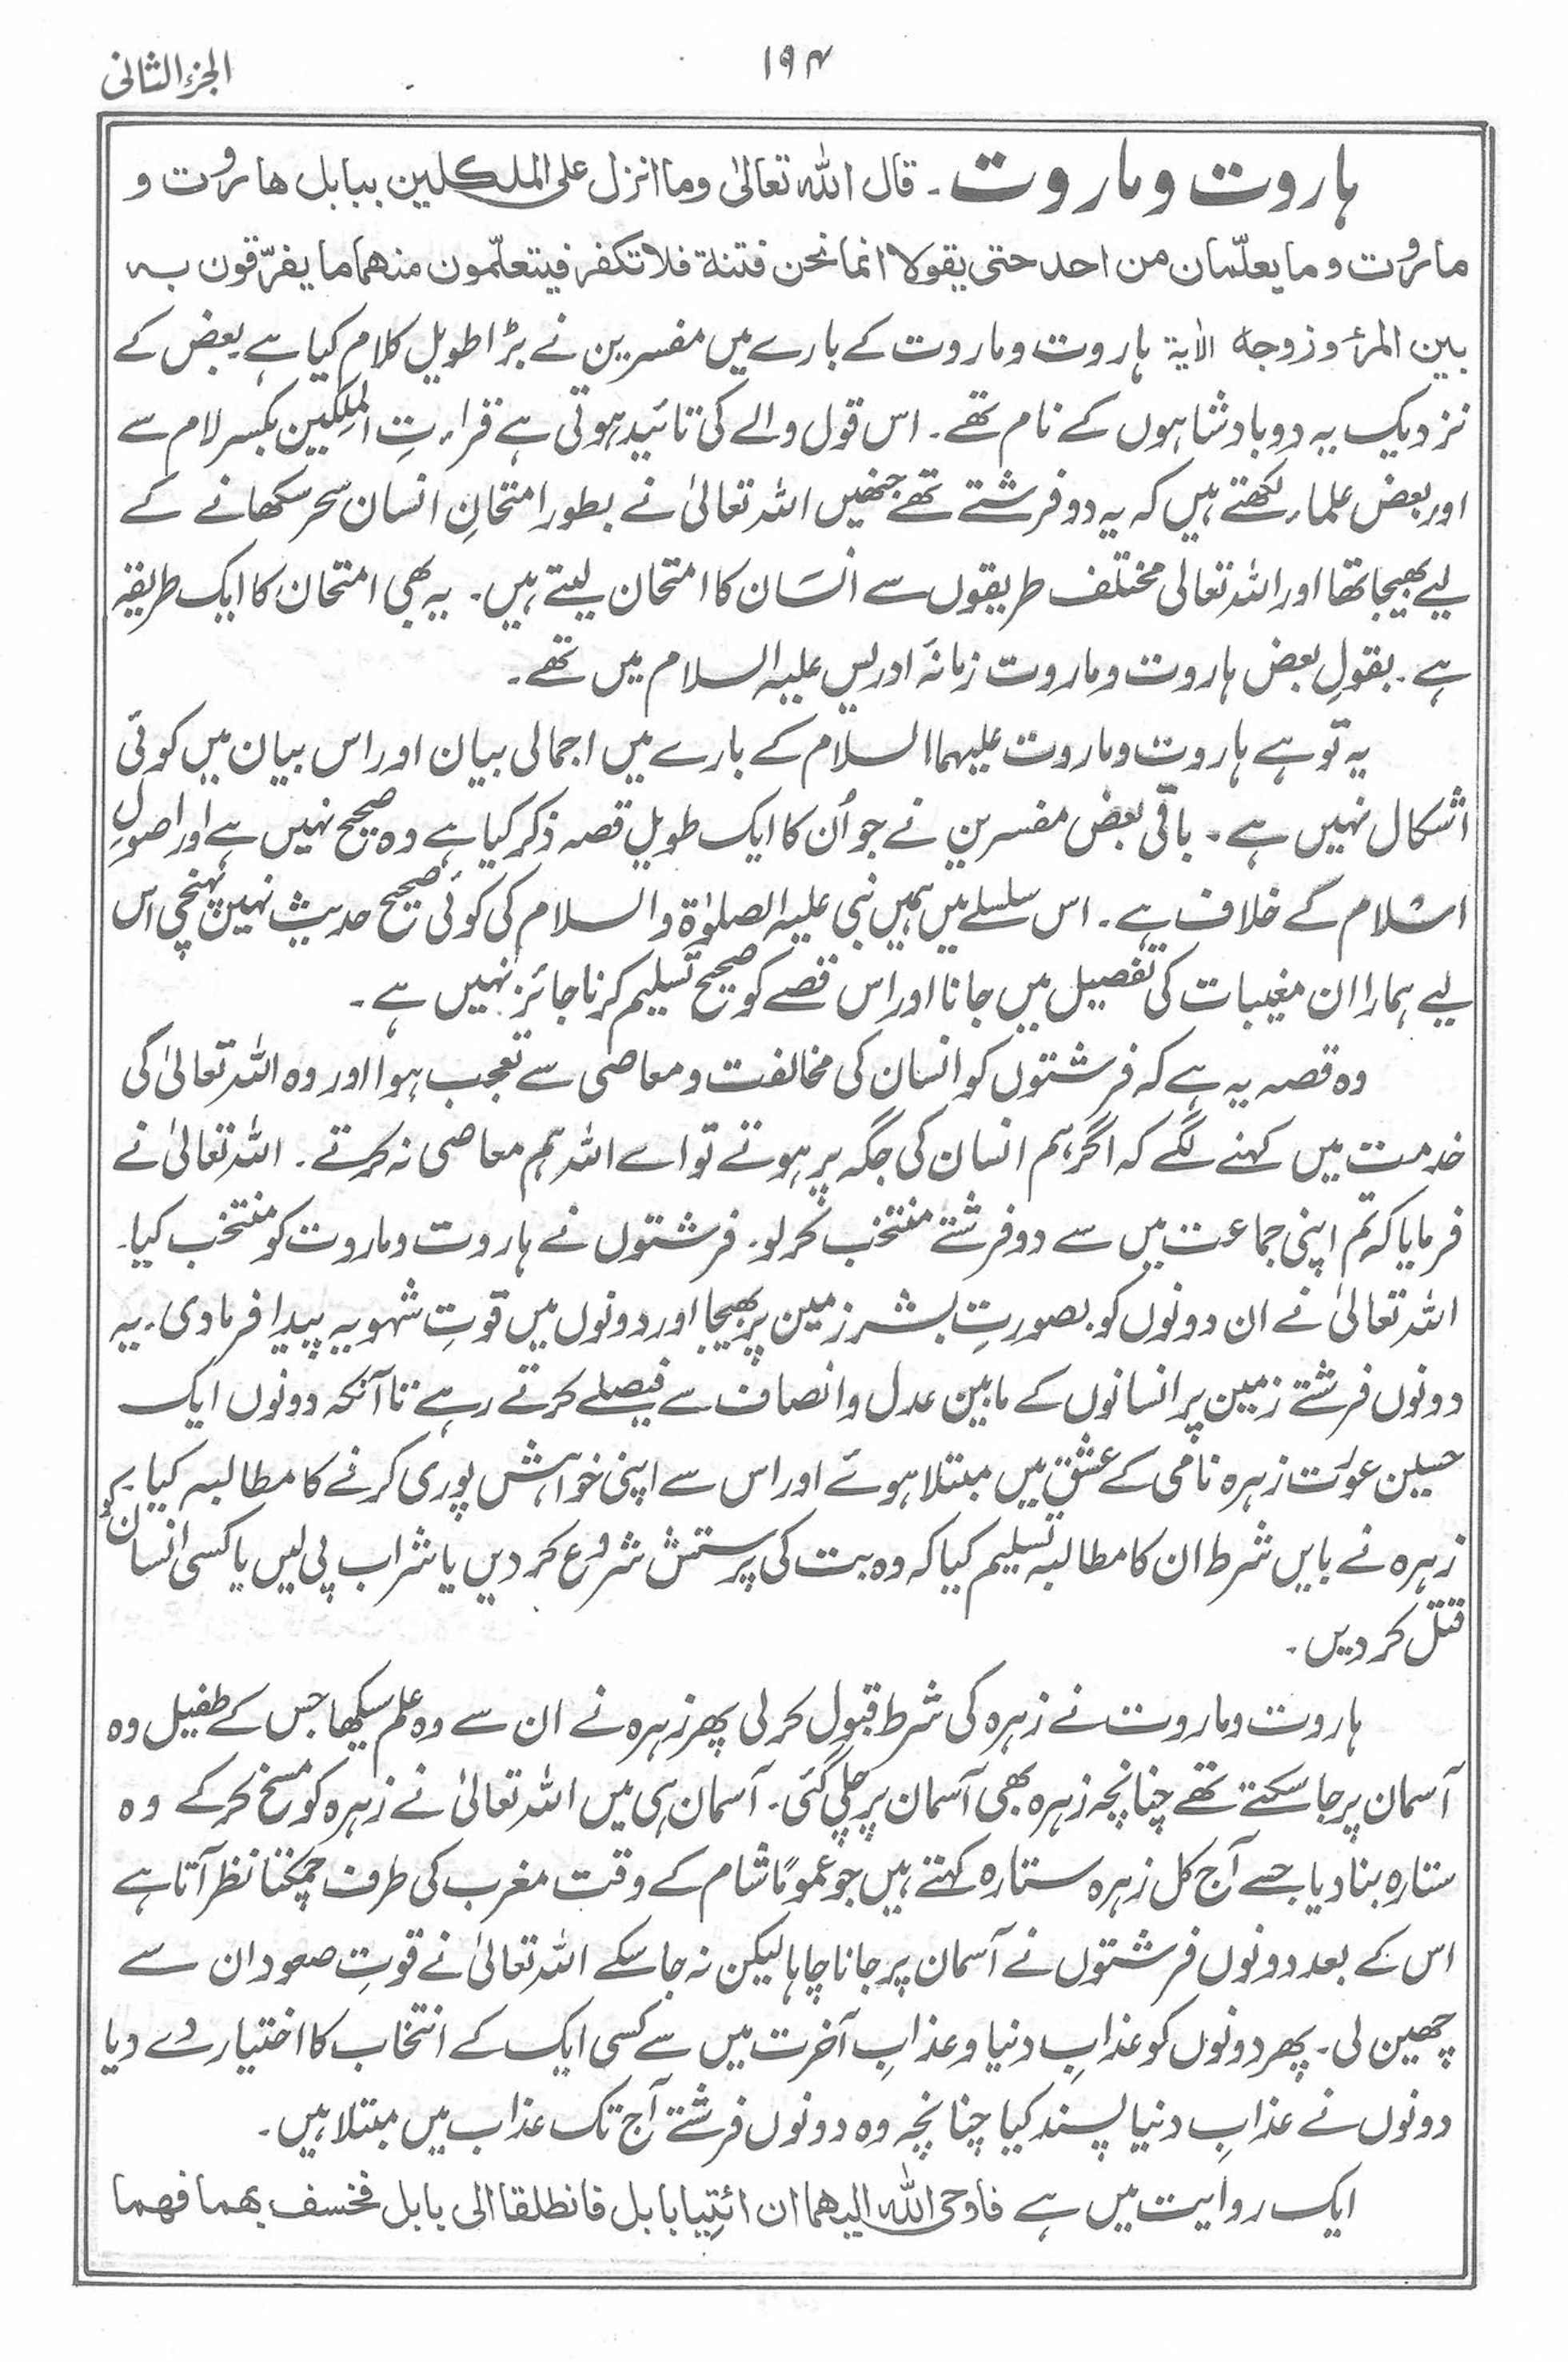 ۱۹۴
الجزء الثانی
ہاروت وماروت ۔ قال اللہ تعالیٰ وما انزل علی الملکین ببابل ھاروت و
ماروت وما یعلّمان من احد حتی یقولا انما نحن فتنة فلا تکفر فیتعلّمون منھما ما یفرّقون بہ
بین المرء وزوجہ الاٰیة ہاروت وماروت کے بارے میں مفسرین نے بڑا طویل کلام کیا ہے بعض کے
نزدیک یہ دو بادشاہوں کے نام تھے ۔ اس قول والے کی تائید ہوتی ہے قراءتِ الملِکین بکسر لام سے
اور بعض علماء لکھتے ہیں کہ یہ دو فرشتے تھے جنھیں اللہ تعالیٰ نے بطور امتحانِ انسان سحر سکھانے کے
لیے بھیجا تھا اور اللہ تعالی مختلف طریقوں سے انسان کا امتحان لیتے ہیں ۔ یہ بھی امتحان کا ایک طریقہ
ہے ۔ بقولِ بعض ہاروت وماروت زمانۂ ادریس علیہ السلام میں تھے ۔
یہ تو ہے ہاروت وماروت علیہما السلام کے بارے میں اجمالی بیان اور اس بیان میں کوئی
اشکال نہیں ہے ۔ باقی بعض مفسرین نے جو اُن کا ایک طویل قصہ ذکر کیا ہے وہ صحیح نہیں ہے اور اصولِ
اسلام کے خلاف ہے ۔ اس سلسلے میں ہمیں نبی علیہ الصلوٰة والسلام کی کوئی صحیح حدیث نہیں پہنچی اس
لیے ہمارا ان مغیبات کی تفصیل میں جانا اور اس قصے کو صحیح تسلیم کرنا جائز نہیں ہے ۔
وہ قصہ یہ ہے کہ فرشتوں کو انسان کی مخالفت ومعاصی سے تعجب ہوا اور وہ اللہ تعالیٰ کی
خدمت میں کہنے لگے کہ اگر ہم انسان کی جگہ پر ہوتے تو اے اللہ ہم معاصی نہ کرتے ۔ اللہ تعالیٰ نے
فرمایا کہ تم اپنی جماعت میں سے دو فرشتے منتخب کرلو ۔ فرشتوں نے ہاروت وماروت کو منتخب کیا ۔
اللہ تعالیٰ نے ان دونوں کو بصورتِ بشر زمین پر بھیجا اور دونوں میں قوتِ شہویہ پیدا فرمادی ۔ یہ
دونوں فرشتے زمین پر انسانوں کے مابین عدل وانصاف سے فیصلے کرتے رہے تا آنکہ دونوں ایک
حسین عورت زہرہ نامی کے عشق میں مبتلا ہوئے اور اس سے اپنی خواہش پوری کرنے کا مطالبہ کیا ۔
زہرہ نے بایں شرط ان کا مطالبہ تسلیم کیا کہ وہ بت کی پرستش شروع کردیں یا شراب پی لیں یا کسی انسان کو
قتل کردیں ۔
ہاروت وماروت نے زہرہ کی شرط قبول کرلی پھر زہرہ نے ان سے وہ علم سیکھا جس کے طفیل وہ
آسمان پر جاسکتے تھے چنانچہ زہرہ بھی آسمان پر چلی گئی ۔ آسمان ہی میں اللہ تعالیٰ نے زہرہ کو مسخ کرکے وہ
ستارہ بنادیا جسے آج کل زہرہ ستارہ کہتے ہیں جو عموماً شام کے وقت مغرب کی طرف چمکتا نظر آتا ہے
اس کے بعد دونوں فرشتوں نے آسمان پر جانا چاہا لیکن نہ جاسکے اللہ تعالیٰ نے قوتِ صعود ان سے
چھین لی ۔ پھر دونوں کو عذابِ دنیا وعذابِ آخرت میں سے کسی ایک کے انتخاب کا اختیار دے دیا
دونوں نے عذابِ دنیا پسند کیا چنانچہ وہ دونوں فرشتے آج تک عذاب میں مبتلا ہیں ۔
ایک روایت میں ہے فاوحی اللہ الیھما ان ائتیا بابل فانطلقا الی بابل فخسف بھما فھما